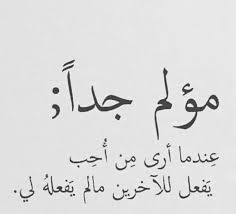 مؤلم جداً؛
عِندما أرى مِن أُحِب
يَفعل للآخرين مالم يَفعلهُ لي.